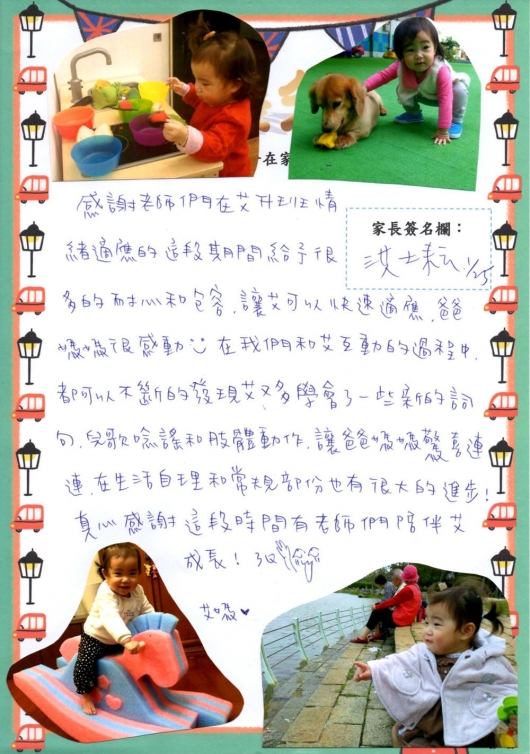 在家
感謝老師們在艾升班班情
家長簽名欄：
1/25
緒適應的這段期間給予很
多的耐心和包容，讓艾可以快速適應，爸
媽媽很感動 在我們和艾互動的過程中，
都可以不斷的發現艾又多學會了一些新的詞
句，兒歌唸謠和肢體動作，讓爸爸媽媽驚喜連
連，在生活自理和常規部份也有很大的進步！
真心感謝這段時間有老師們陪伴艾
成長！
艾媽